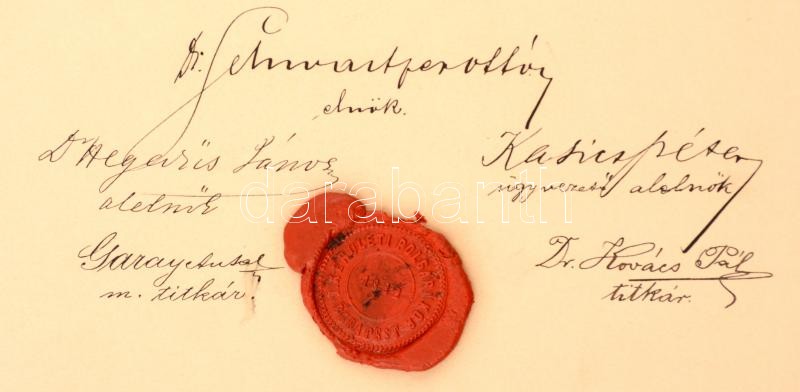 Dr. Schwartzer Ottó
elnök.
Dr Hegedüs János
alelnök
Kasics Péter
ügyvezető alelnök
Garay Antal
m. titkár.
Dr. Kovács Pál
titkár.
BUDAPEST
darabanth